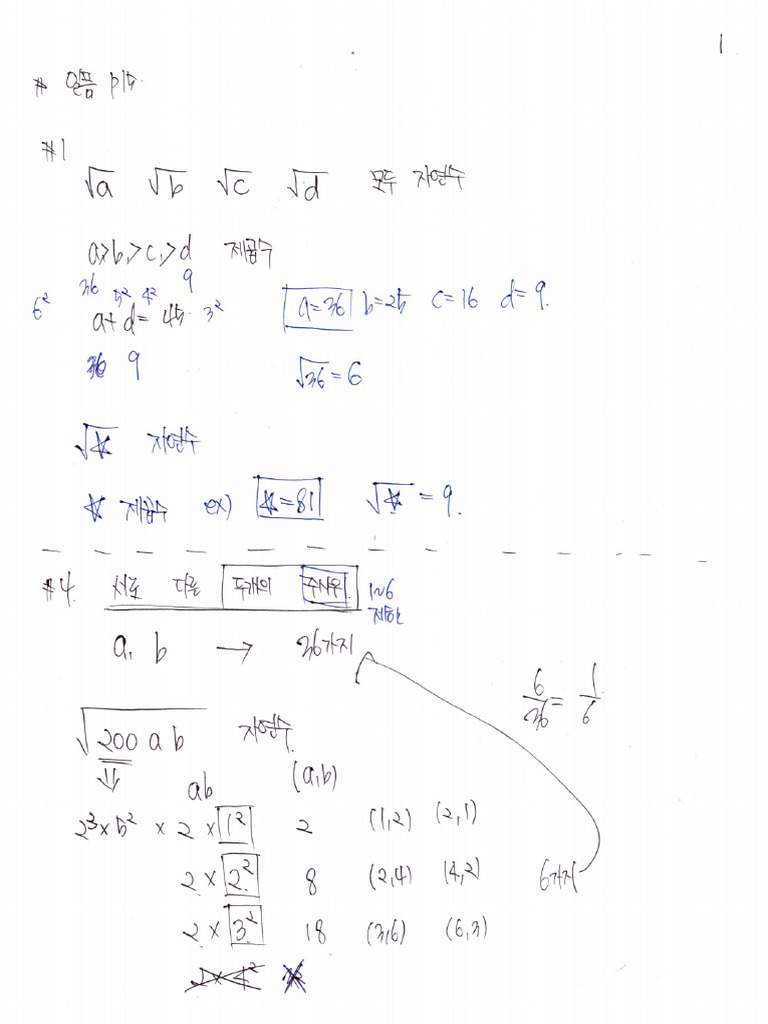 1
# 일품 p15.
#1
√a √b √c √d 모두 자연수
a>b>c>d 제곱수
36 5² 4² 9
6² a+d=45 3² a=36 b=25 c=16 d=9.
36 9 √36=6
√☆ 자연수
☆ 제곱수 ex) ☆=81 √☆=9.
#4. 서로 다른 두개의 주사위 1~6
제한
a, b → 36가지
6/36 = 1/6
√200ab 자연수.
⇓ ab (a,b)
2³×5² × 2 × 1² 2 (1,2) (2,1)
2 × 2² 8 (2,4) (4,2) 6가지
2 × 3² 18 (3,6) (6,3)
2×4²